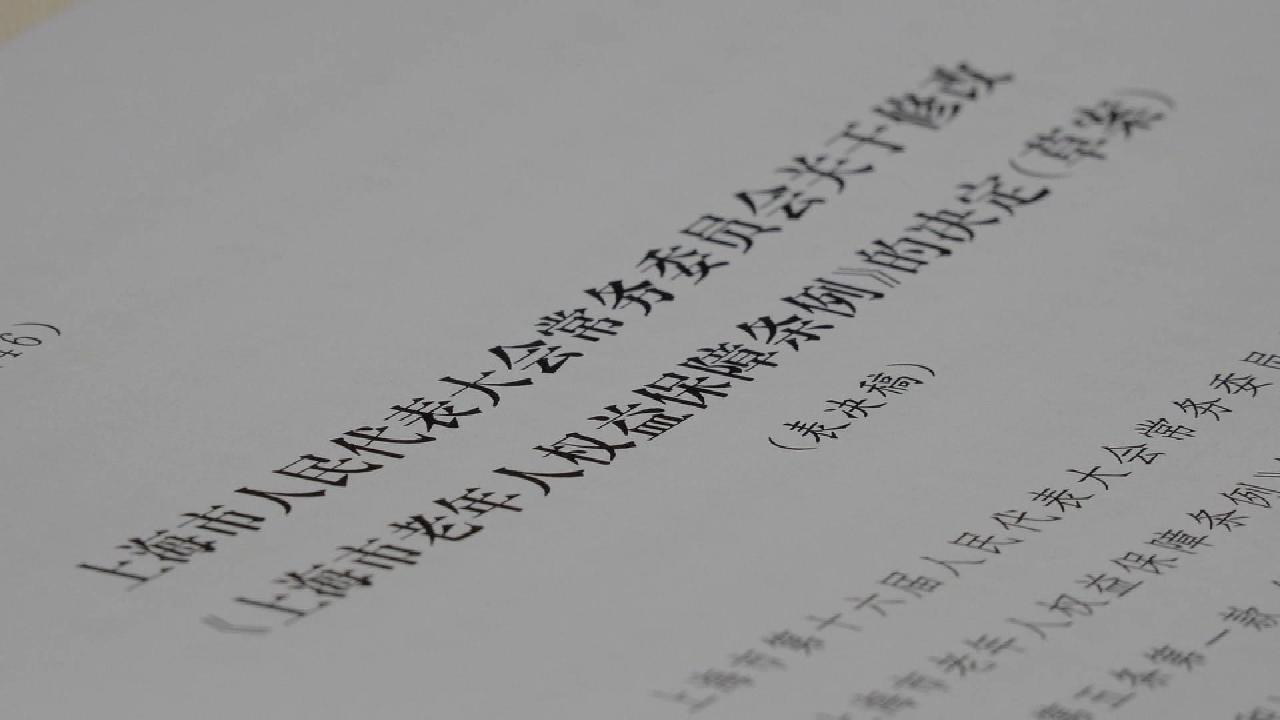 46）
上海市人民代表大会常务委员会关于修改
《上海市老年人权益保障条例》的决定（草案）
（表决稿）
上海市第十六届人民代表大会常务委员
海市老年人权益保障条例》
第五条第一款